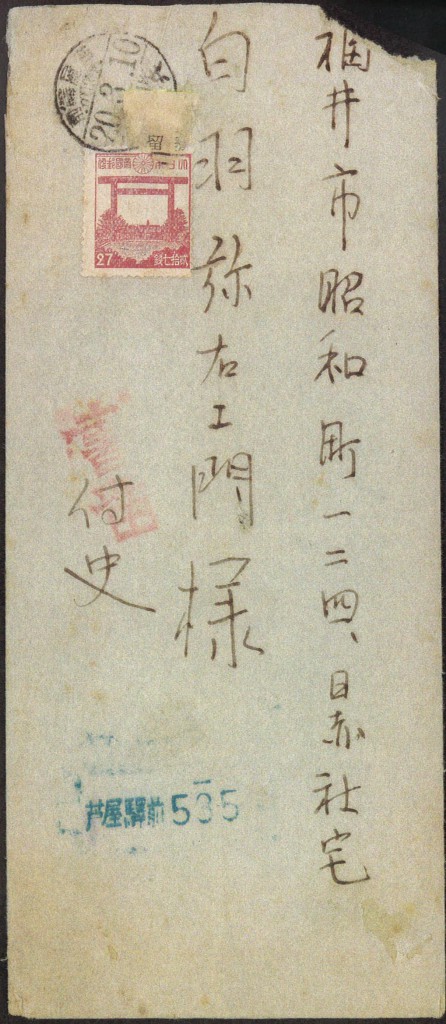 福井市昭和町一二四、日赤社宅
白羽弥右エ門様
付史
書留
20.3.10
27
弐拾七銭
芦屋驛前535